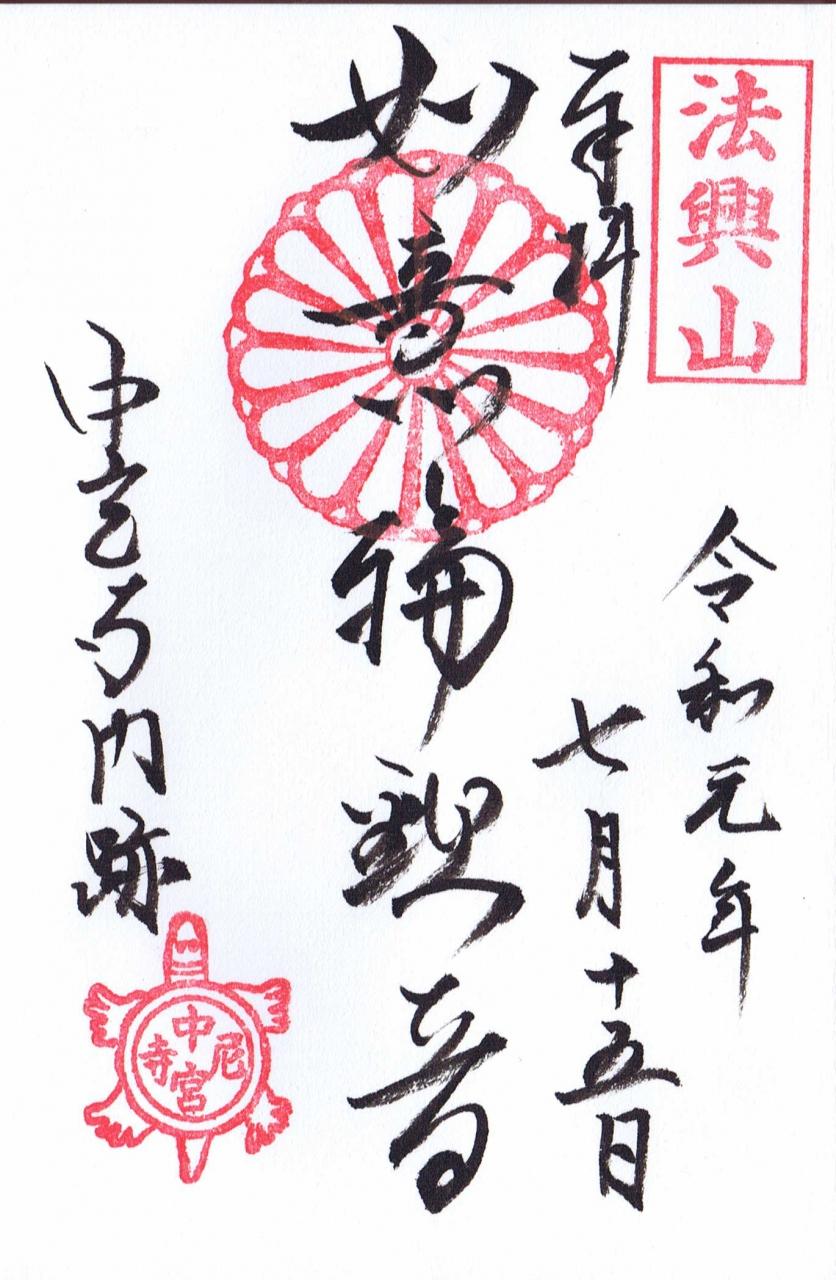 法興山
奉拝
令和元年
七月十五日
如意輪観音
中宮寺門跡
中宮尼寺